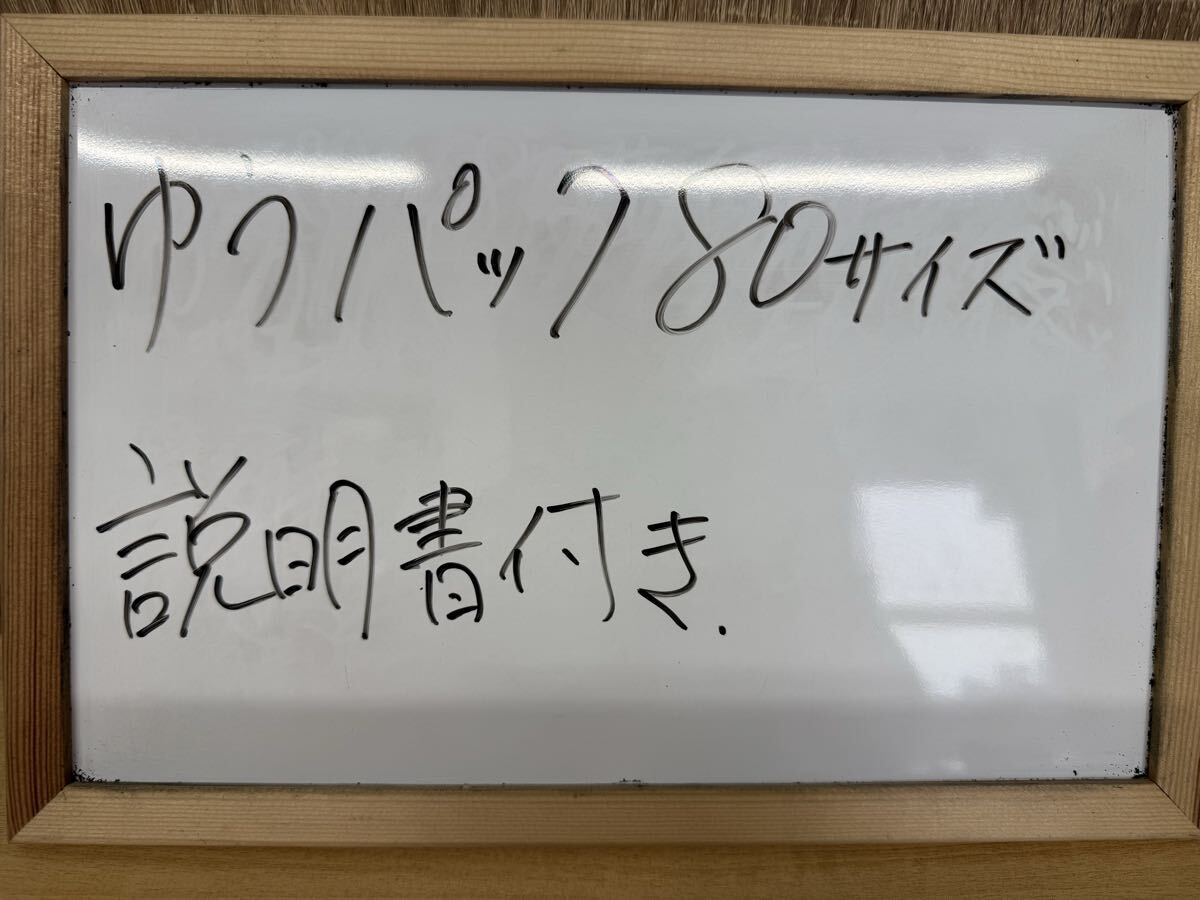 ゆうパック80サイズ
説明書付き.